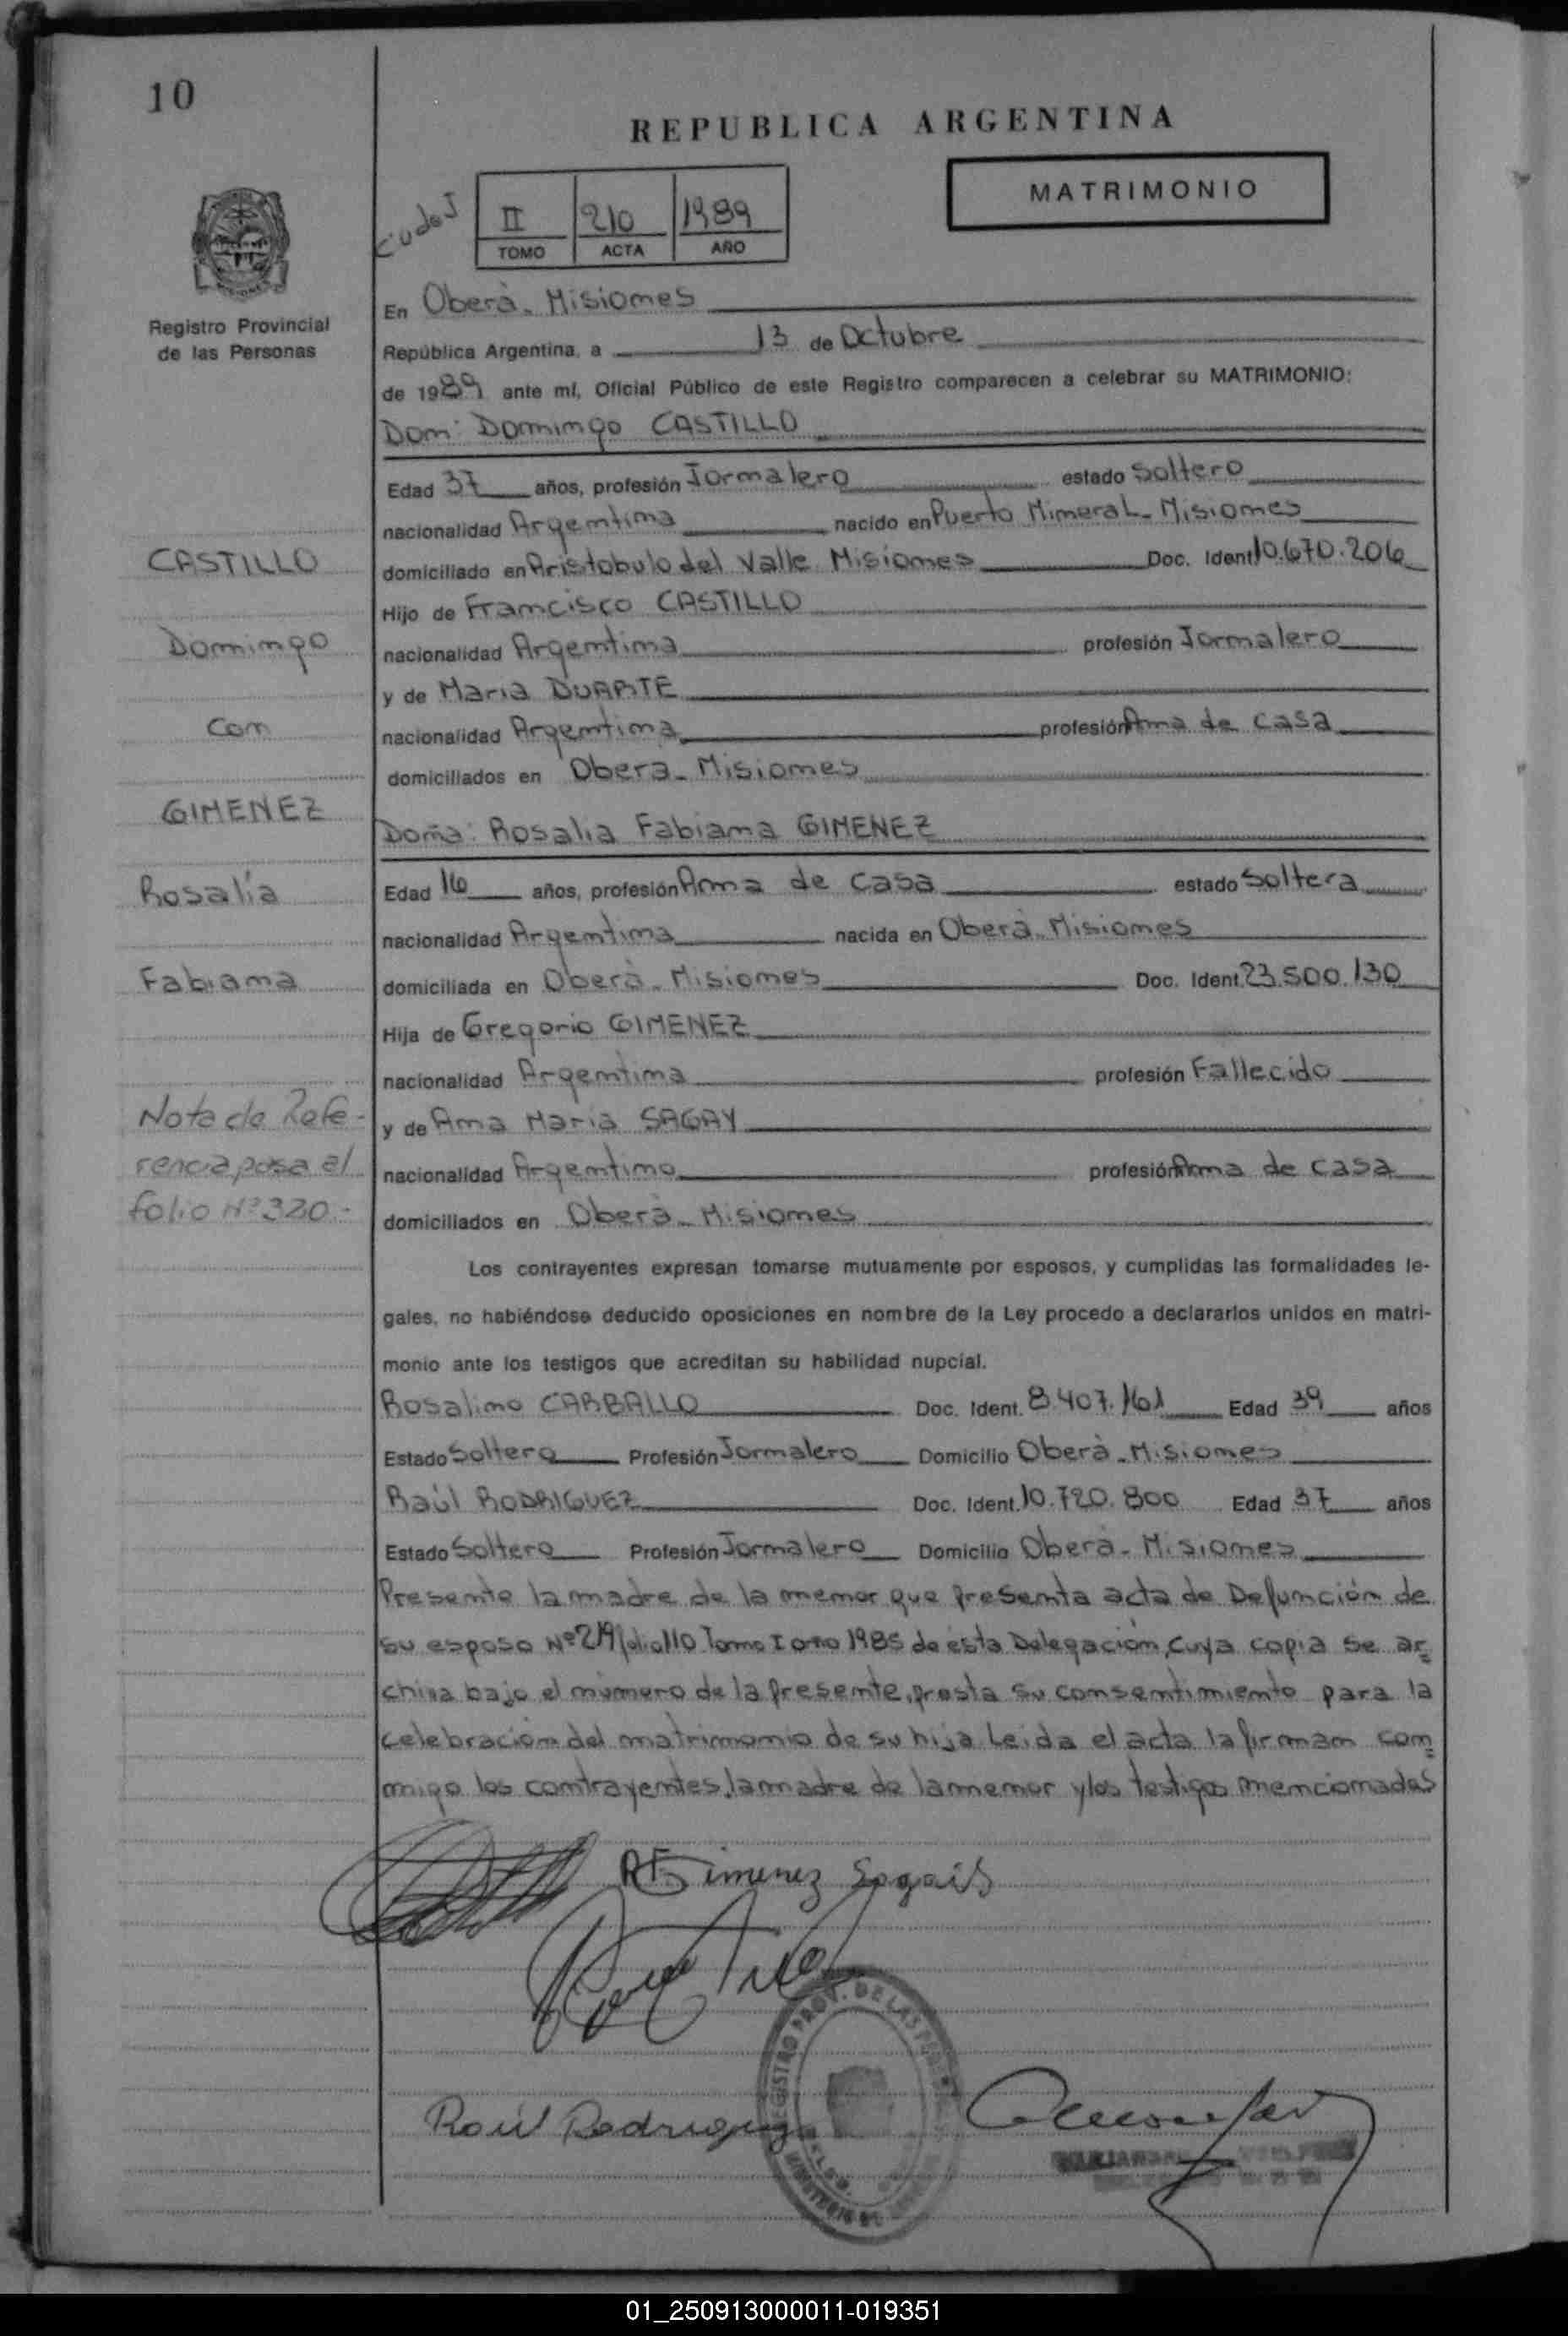 10
REPUBLICA ARGENTINA
MATRIMONIO
II 210 1989
TOMO ACTA AÑO
Registro Provincial
de las Personas
En Oberà - Misiones
República Argentina, a 13 de Octubre
de 1989 ante mí, Oficial Público de este Registro comparecen a celebrar su MATRIMONIO:
Don: Domingo CASTILLO
Edad 37 años, profesión Jornalero estado Soltero
nacionalidad Argentina nacido en Puerto Mineral - Misiones
domiciliado en Aristobulo del Valle Misiones Doc. Ident 10.670.206
Hijo de Francisco CASTILLO
nacionalidad Argentina profesión Jornalero
y de Maria DUARTE
nacionalidad Argentina profesión Ama de casa
domiciliados en Obera - Misiones
Doña: Rosalia Fabiana GIMENEZ
Edad 16 años, profesión Ama de casa estado Soltera
nacionalidad Argentina nacida en Oberà - Misiones
domiciliada en Oberà - Misiones Doc. Ident. 23.500.130
Hija de Gregorio GIMENEZ
nacionalidad Argentina profesión Fallecido
y de Ana Maria SAGAY
nacionalidad Argentina profesión Ama de casa
domiciliados en Oberà - Misiones
CASTILLO
Domingo
con
GIMENEZ
Rosalía
Fabiana
Nota de Refe-
rencia pasa al
folio Nº 320.-
Los contrayentes expresan tomarse mutuamente por esposos, y cumplidas las formalidades le-
gales, no habiéndose deducido oposiciones en nombre de la Ley procedo a declararlos unidos en matri-
monio ante los testigos que acreditan su habilidad nupcial.
Rosalino CARBALLO Doc. Ident. 8.407.161 Edad 39 años
Estado Soltero Profesión Jornalero Domicilio Oberà - Misiones
Raúl RODRIGUEZ Doc. Ident. 10.720.800 Edad 37 años
Estado Soltero Profesión Jornalero Domicilio Oberà - Misiones
Presente la madre de la menor que presenta acta de Defunción de
su esposo Nº 219 folio 110 Tomo I año 1985 de esta Delegación, cuya copia se ar=
chiva bajo el número de la presente, presta su consentimiento para la
celebración del matrimonio de su hija Leida el acta la firman con=
migo los contrayentes, la madre de la menor y los testigos mencionados
RF Gimenez Sagais
Raúl Rodriguez
REGISTRO PROV. DE LAS
01_250913000011-019351